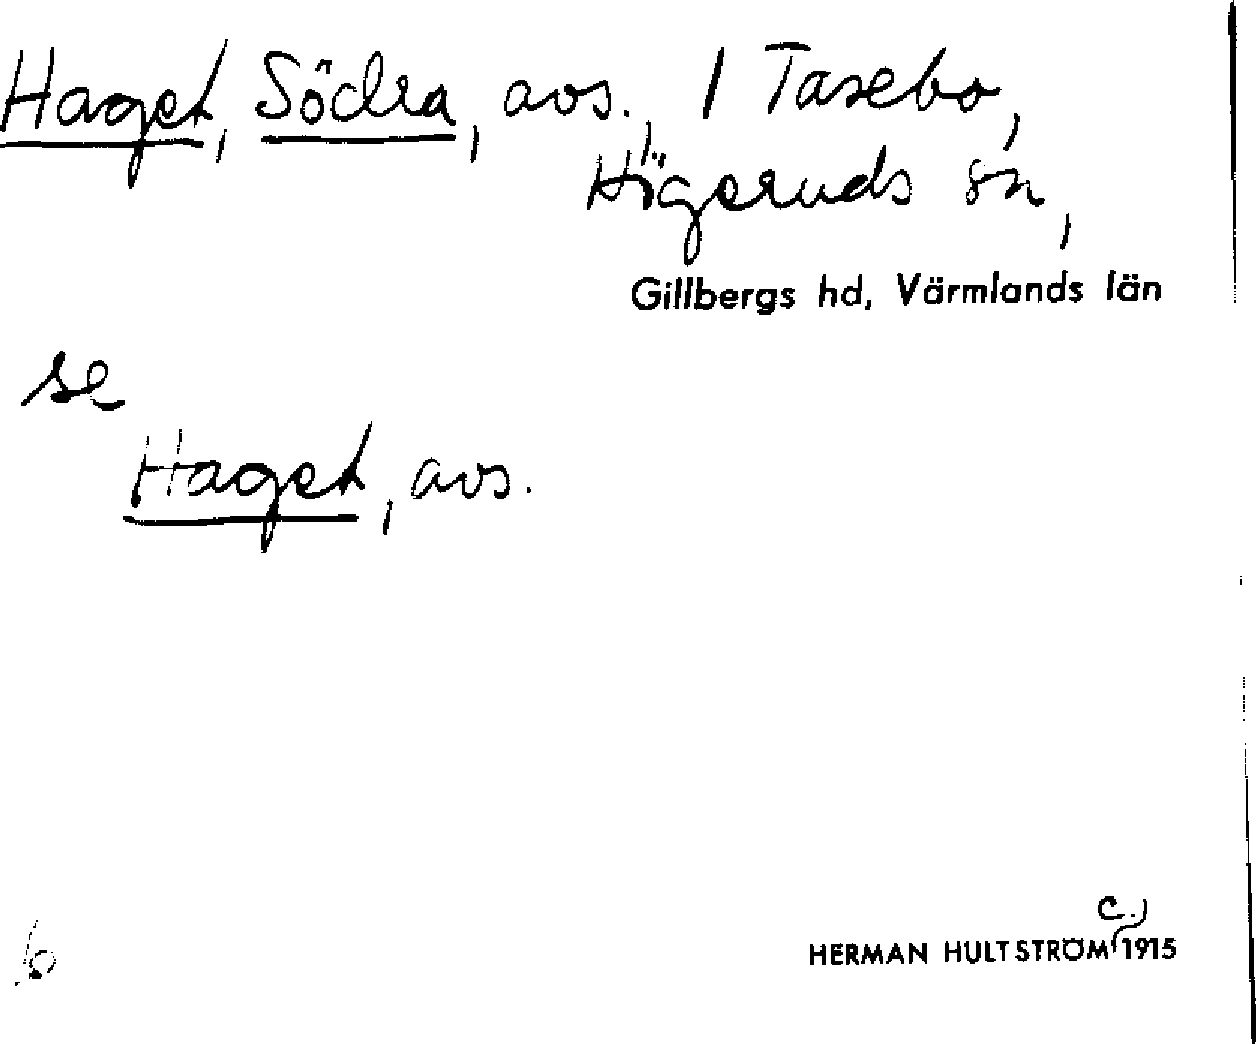 Haget, Södra, avs. / Tasebo,
Högeruds sn,
Gillbergs hd, Värmlands län
se
Haget, avs.
c.)
HERMAN HULTSTRÖM 1915